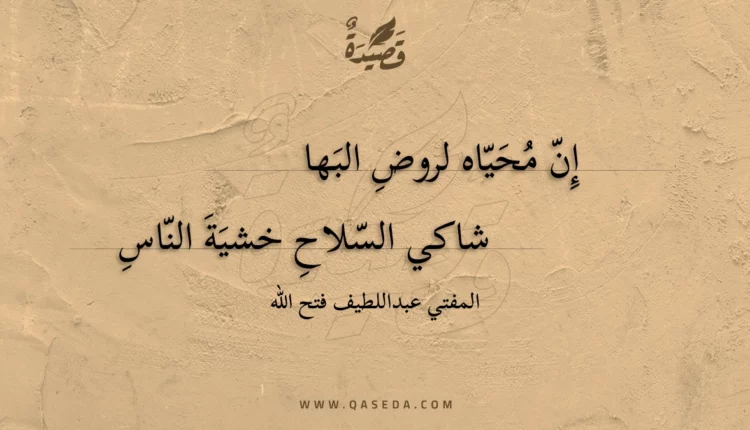 قَصِيدَةٌ
إِنّ مُحَيّاه لروضِ البَها
شاكي السّلاحِ خشيَةَ النّاسِ
المفتي عبداللطيف فتح الله
WWW.QASEDA.COM